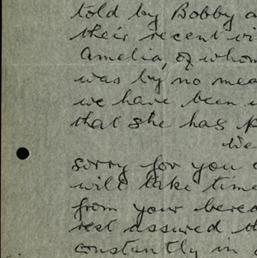 told by Bobby a
their recent vi
Amelia, of whom
was by no mea
we have been u
that she has p
We
sorry for you a
will take time
from your berea
rest assured th
constantly in o